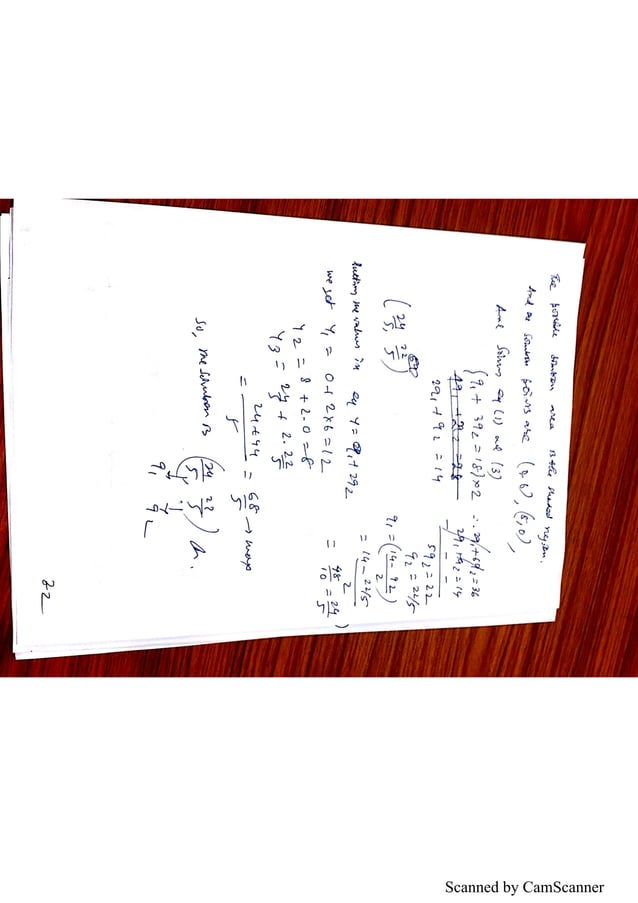 The possible solution area is the shaded region.
And the solution points are (9,6), (8,0),
And Solving eq (1) and (3)
{q1 + 3q2 = 18} × 2 ∴ 2q1 + 6q2 = 36
2q1 + q2 = 14
2q1 + q2 = 14
5q2 = 22
q2 = 22/5
q1 = (14 - q2 / 2)
= 14 - 22/5 / 2
= 48/10 = 24/5 )
(24/5, 22/5)
Putting the values in eq Y = q1 + 2q2
we get Y1 = 0 + 2×6 = 12
Y2 = 8 + 2·0 = 8
Y3 = 24/5 + 2·22/5
= 24+44 / 5 = 68/5 → max
So, the solution is (24/5, 22/5) A.
↓ ↓
q1 q2
22
Scanned by CamScanner